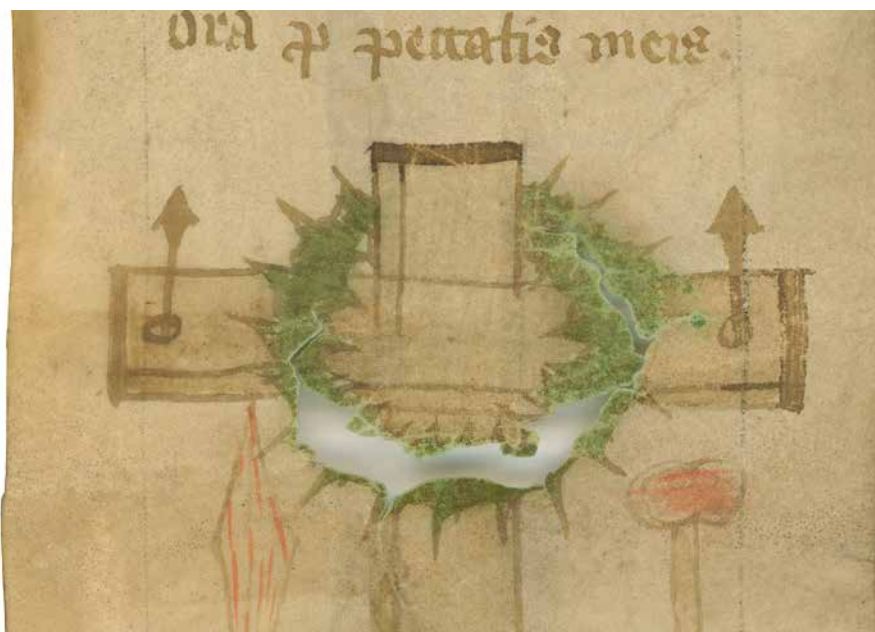 Ora p̲ peccatis meis.